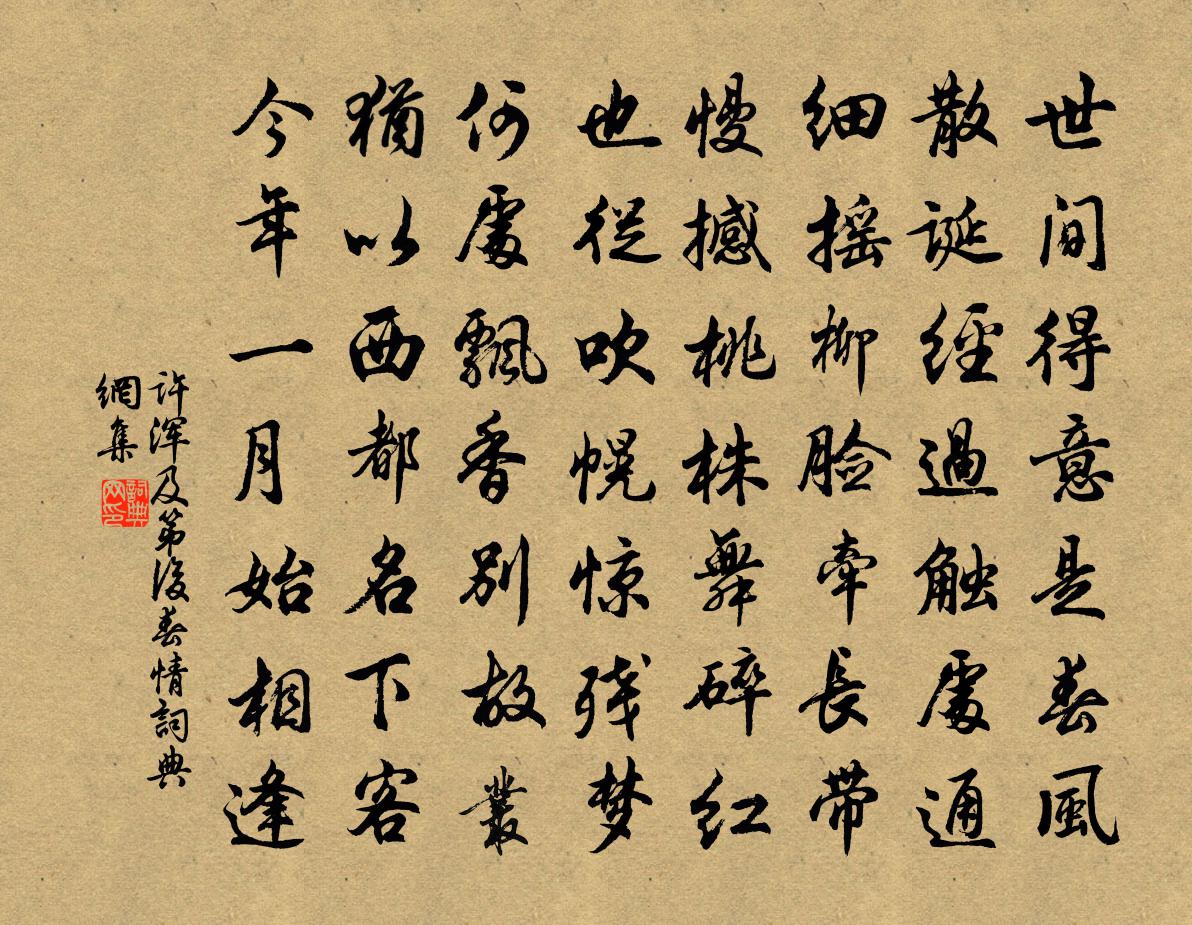 世間得意是春風
散誕經過觸處通
细摇柳脸牵長带
慢撼桃株舞碎红
也從吹幌惊残梦
何處飄香别故叢
猶以西都名下客
今年一月始相逢
许浑及第後春情詞典
網集
詞典
网印